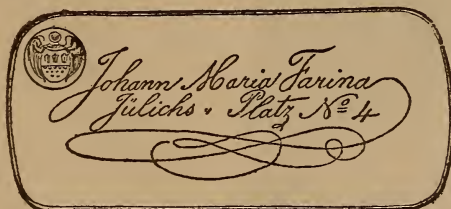 Johann Maria Farina
Jülichs • Platz Nº 4